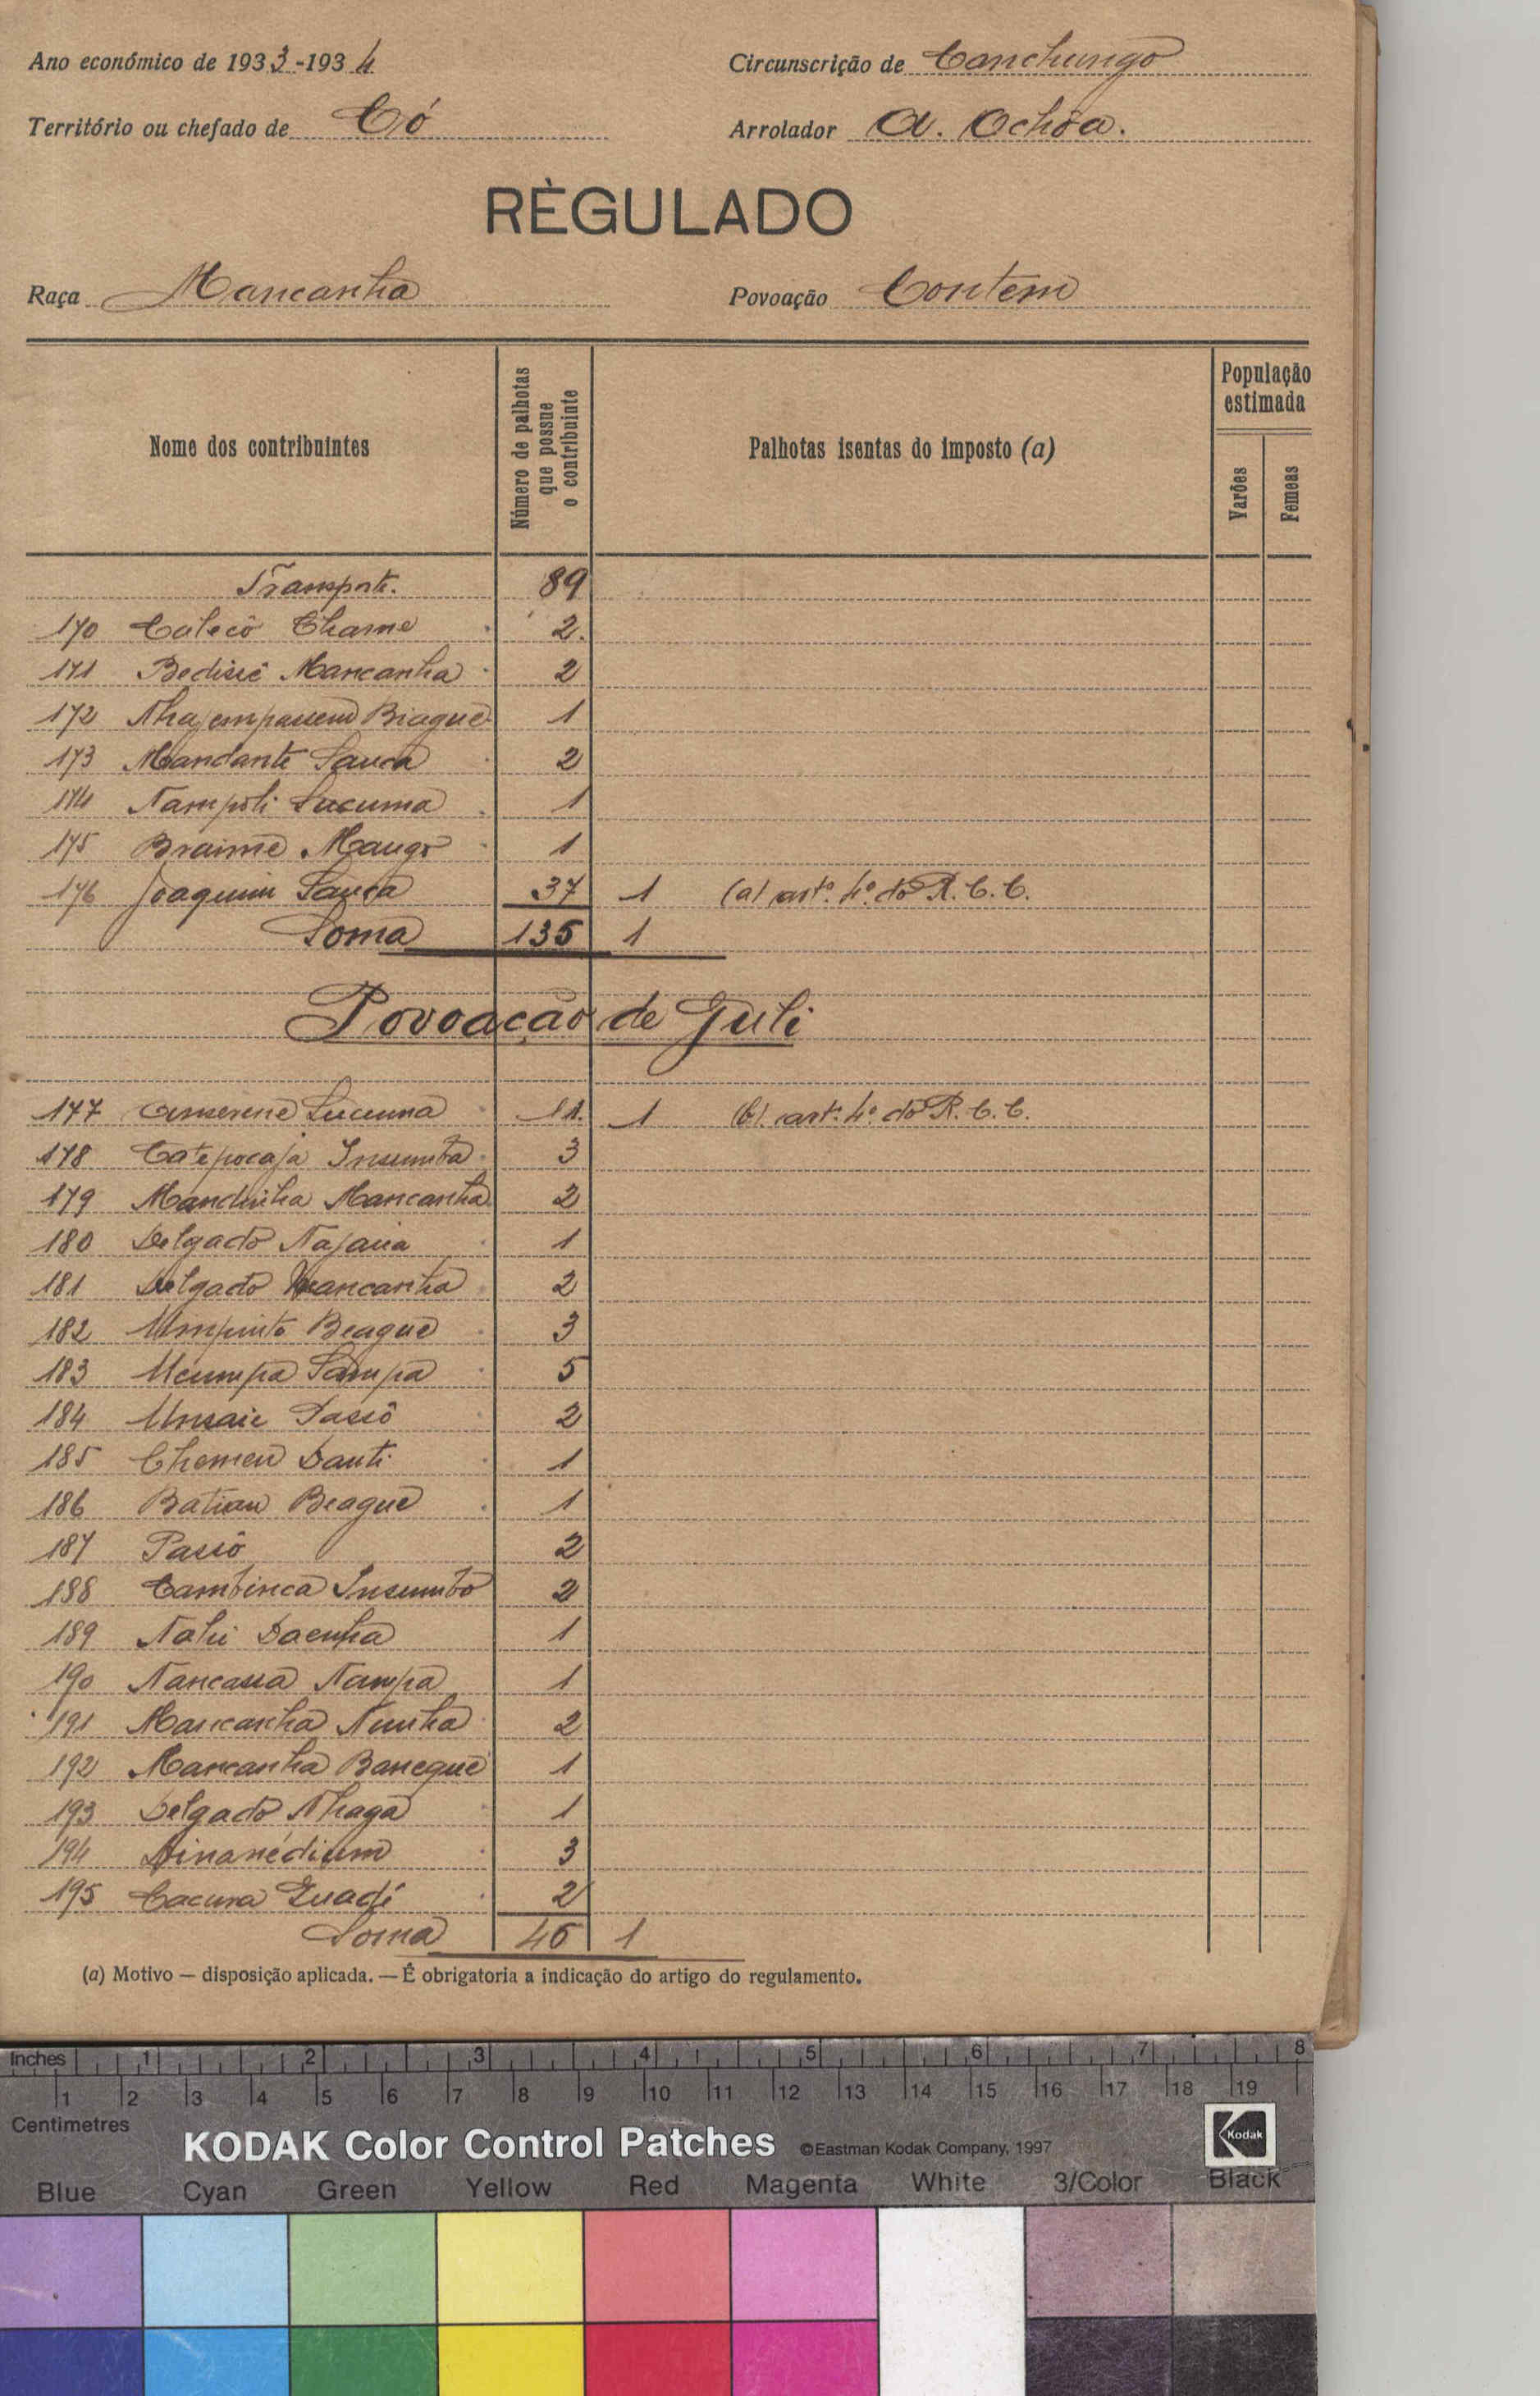 Ano económico de 1933-1934
Circunscrição de Canchungo
Território ou chefado de Có
Arrolador A. Ochôa.
RÈGULADO
Raça Mancanha
Povoação Contem
Nome dos contribuintes
Número de palhotas que possue o contribuinte
Palhotas isentas do imposto (a)
População estimada
Varões
Femeas
Transpte. 89
170 Calecô Chame 2.
171 Bedisiê Mancanha 2
172 Biague 1
173 Mandante Sauca 2
174 Nampoli Lucuma 1
175 Braime Mango 1
176 Joaquim Sauca 37 1 (a) artº. 4º. do R. C. C.
Soma 135 1
Povoação de Juli
177 Lucuma 11. 1 (b). artº. 4º. do R. C. C.
178 Catepocaja Insumba 3
179 Mandinha Mancanha 2
180 Delgado Najaua 1
181 Delgado Mancanha 2
182 Umpinto Beague 3
183 Ucumpa Sampa 5
184 Unsaie 2
185 Chomeu Dauti 1
186 Batian Beague 1
187 Passô 2
188 Cambinca Insumbo 2
189 1
190 Nancassa Nampa 1
191 Mancanha Nunha 2
192 Mancanha Banegue 1
193 Delgado Nhaga 1
194 3
195 Cacura 2
Soma 46 1
(a) Motivo — disposição aplicada. — É obrigatoria a indicação do artigo do regulamento.
Inches 1 2 3 4 5 6 7 8
1 2 3 4 5 6 7 8 9 10 11 12 13 14 15 16 17 18 19
Centimetres
KODAK Color Control Patches ©Eastman Kodak Company, 1997 Kodak
Blue Cyan Green Yellow Red Magenta White 3/Color Black